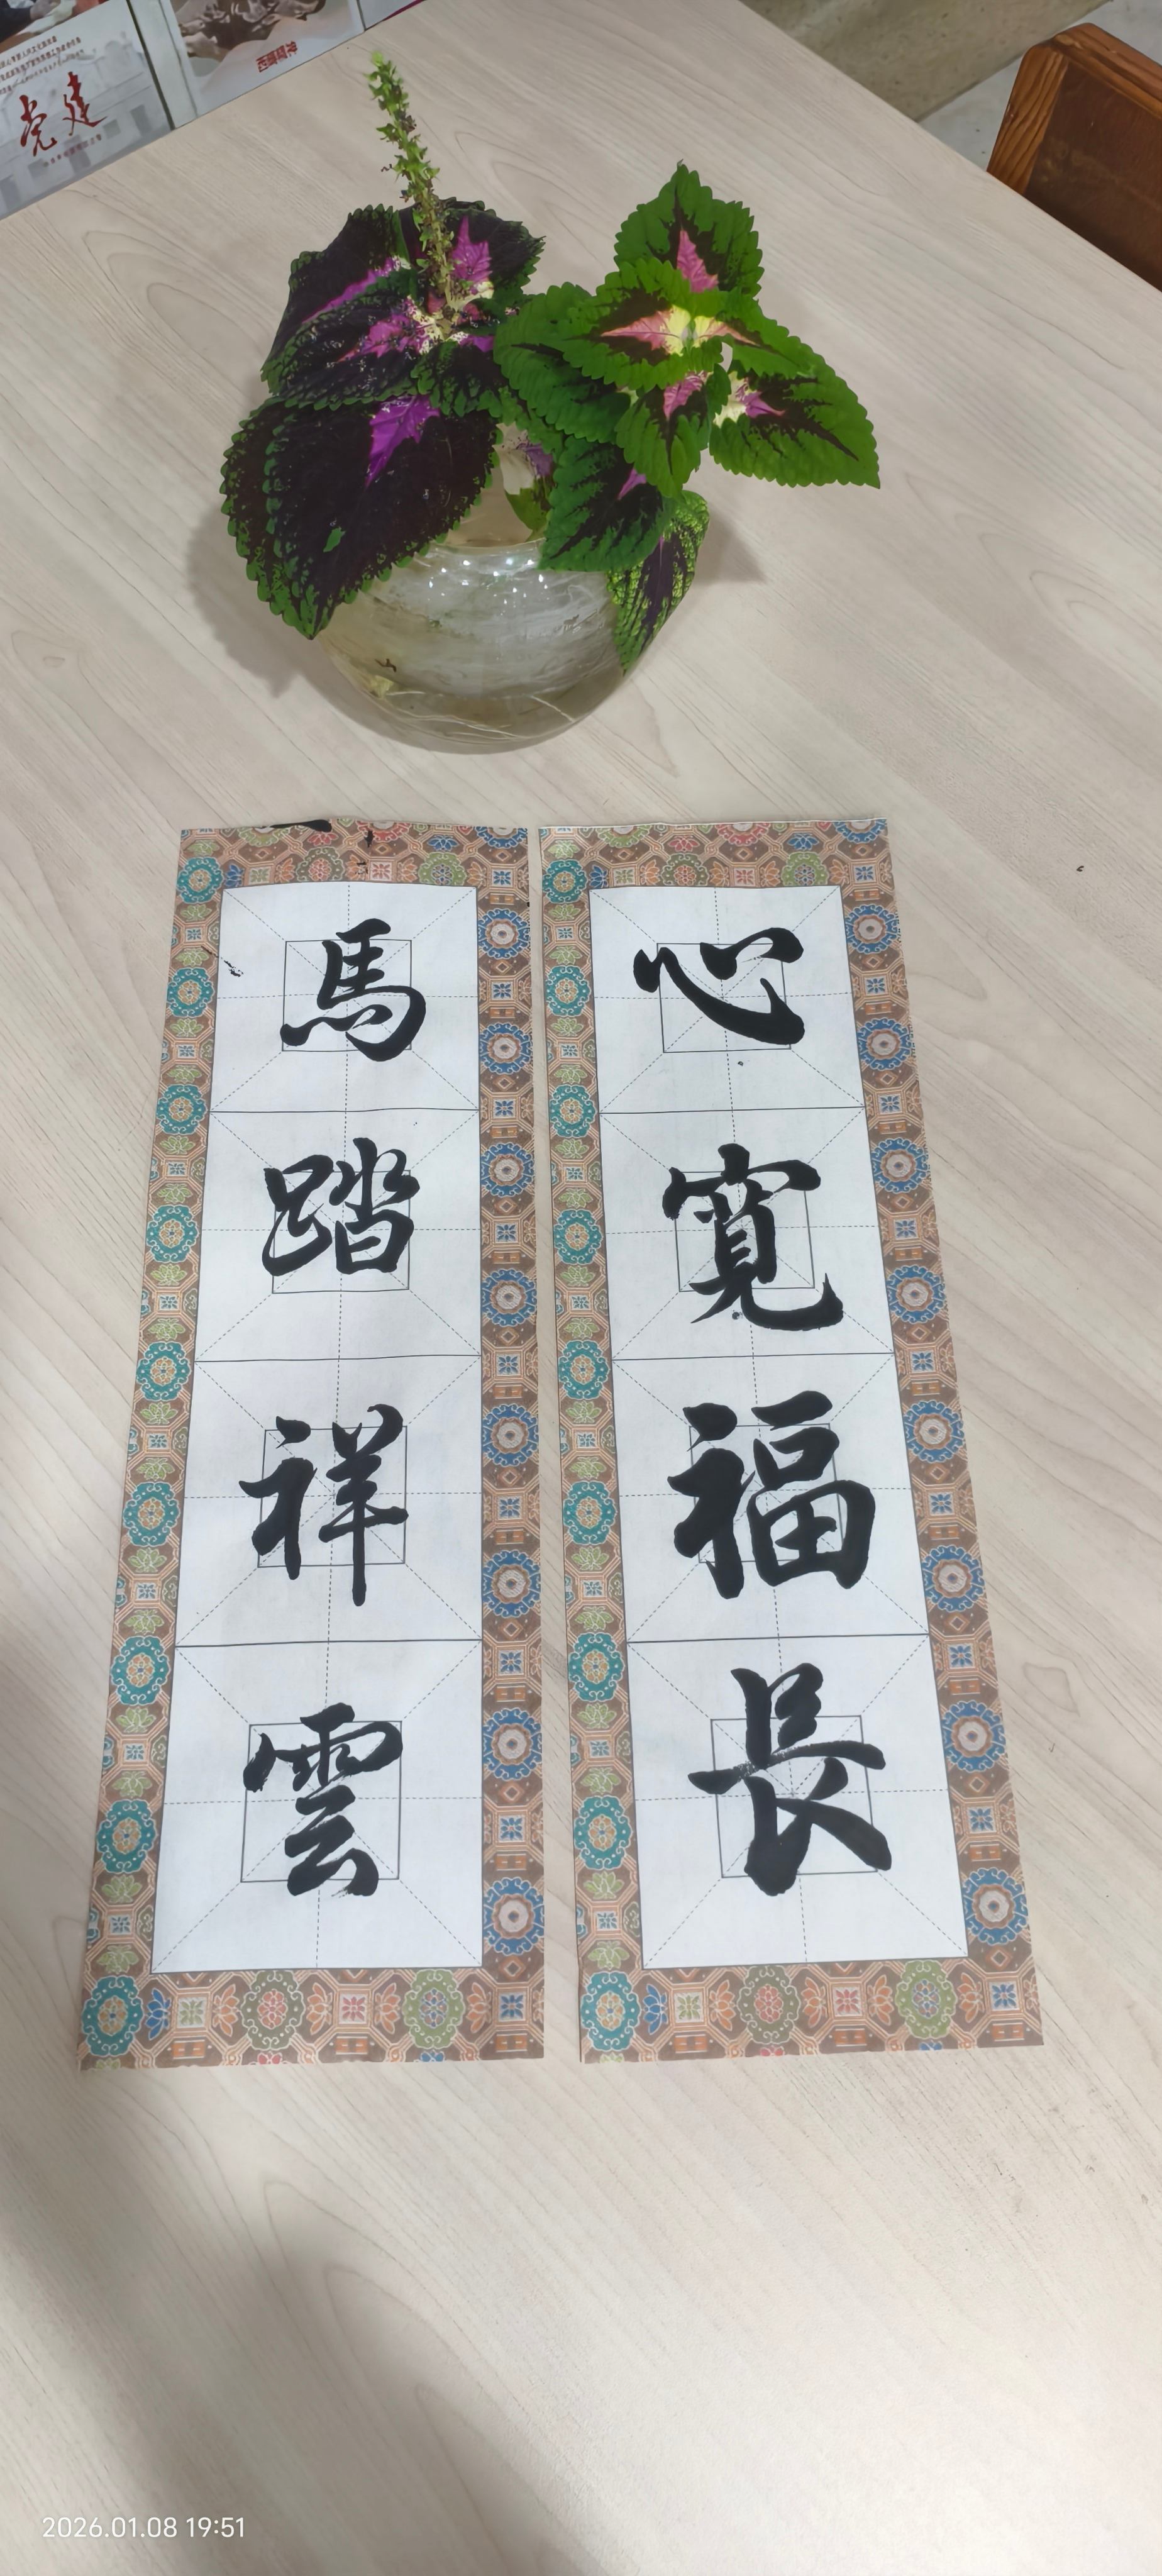 党建
馬踏祥雲
心寬福長
2026.01.08 19:51